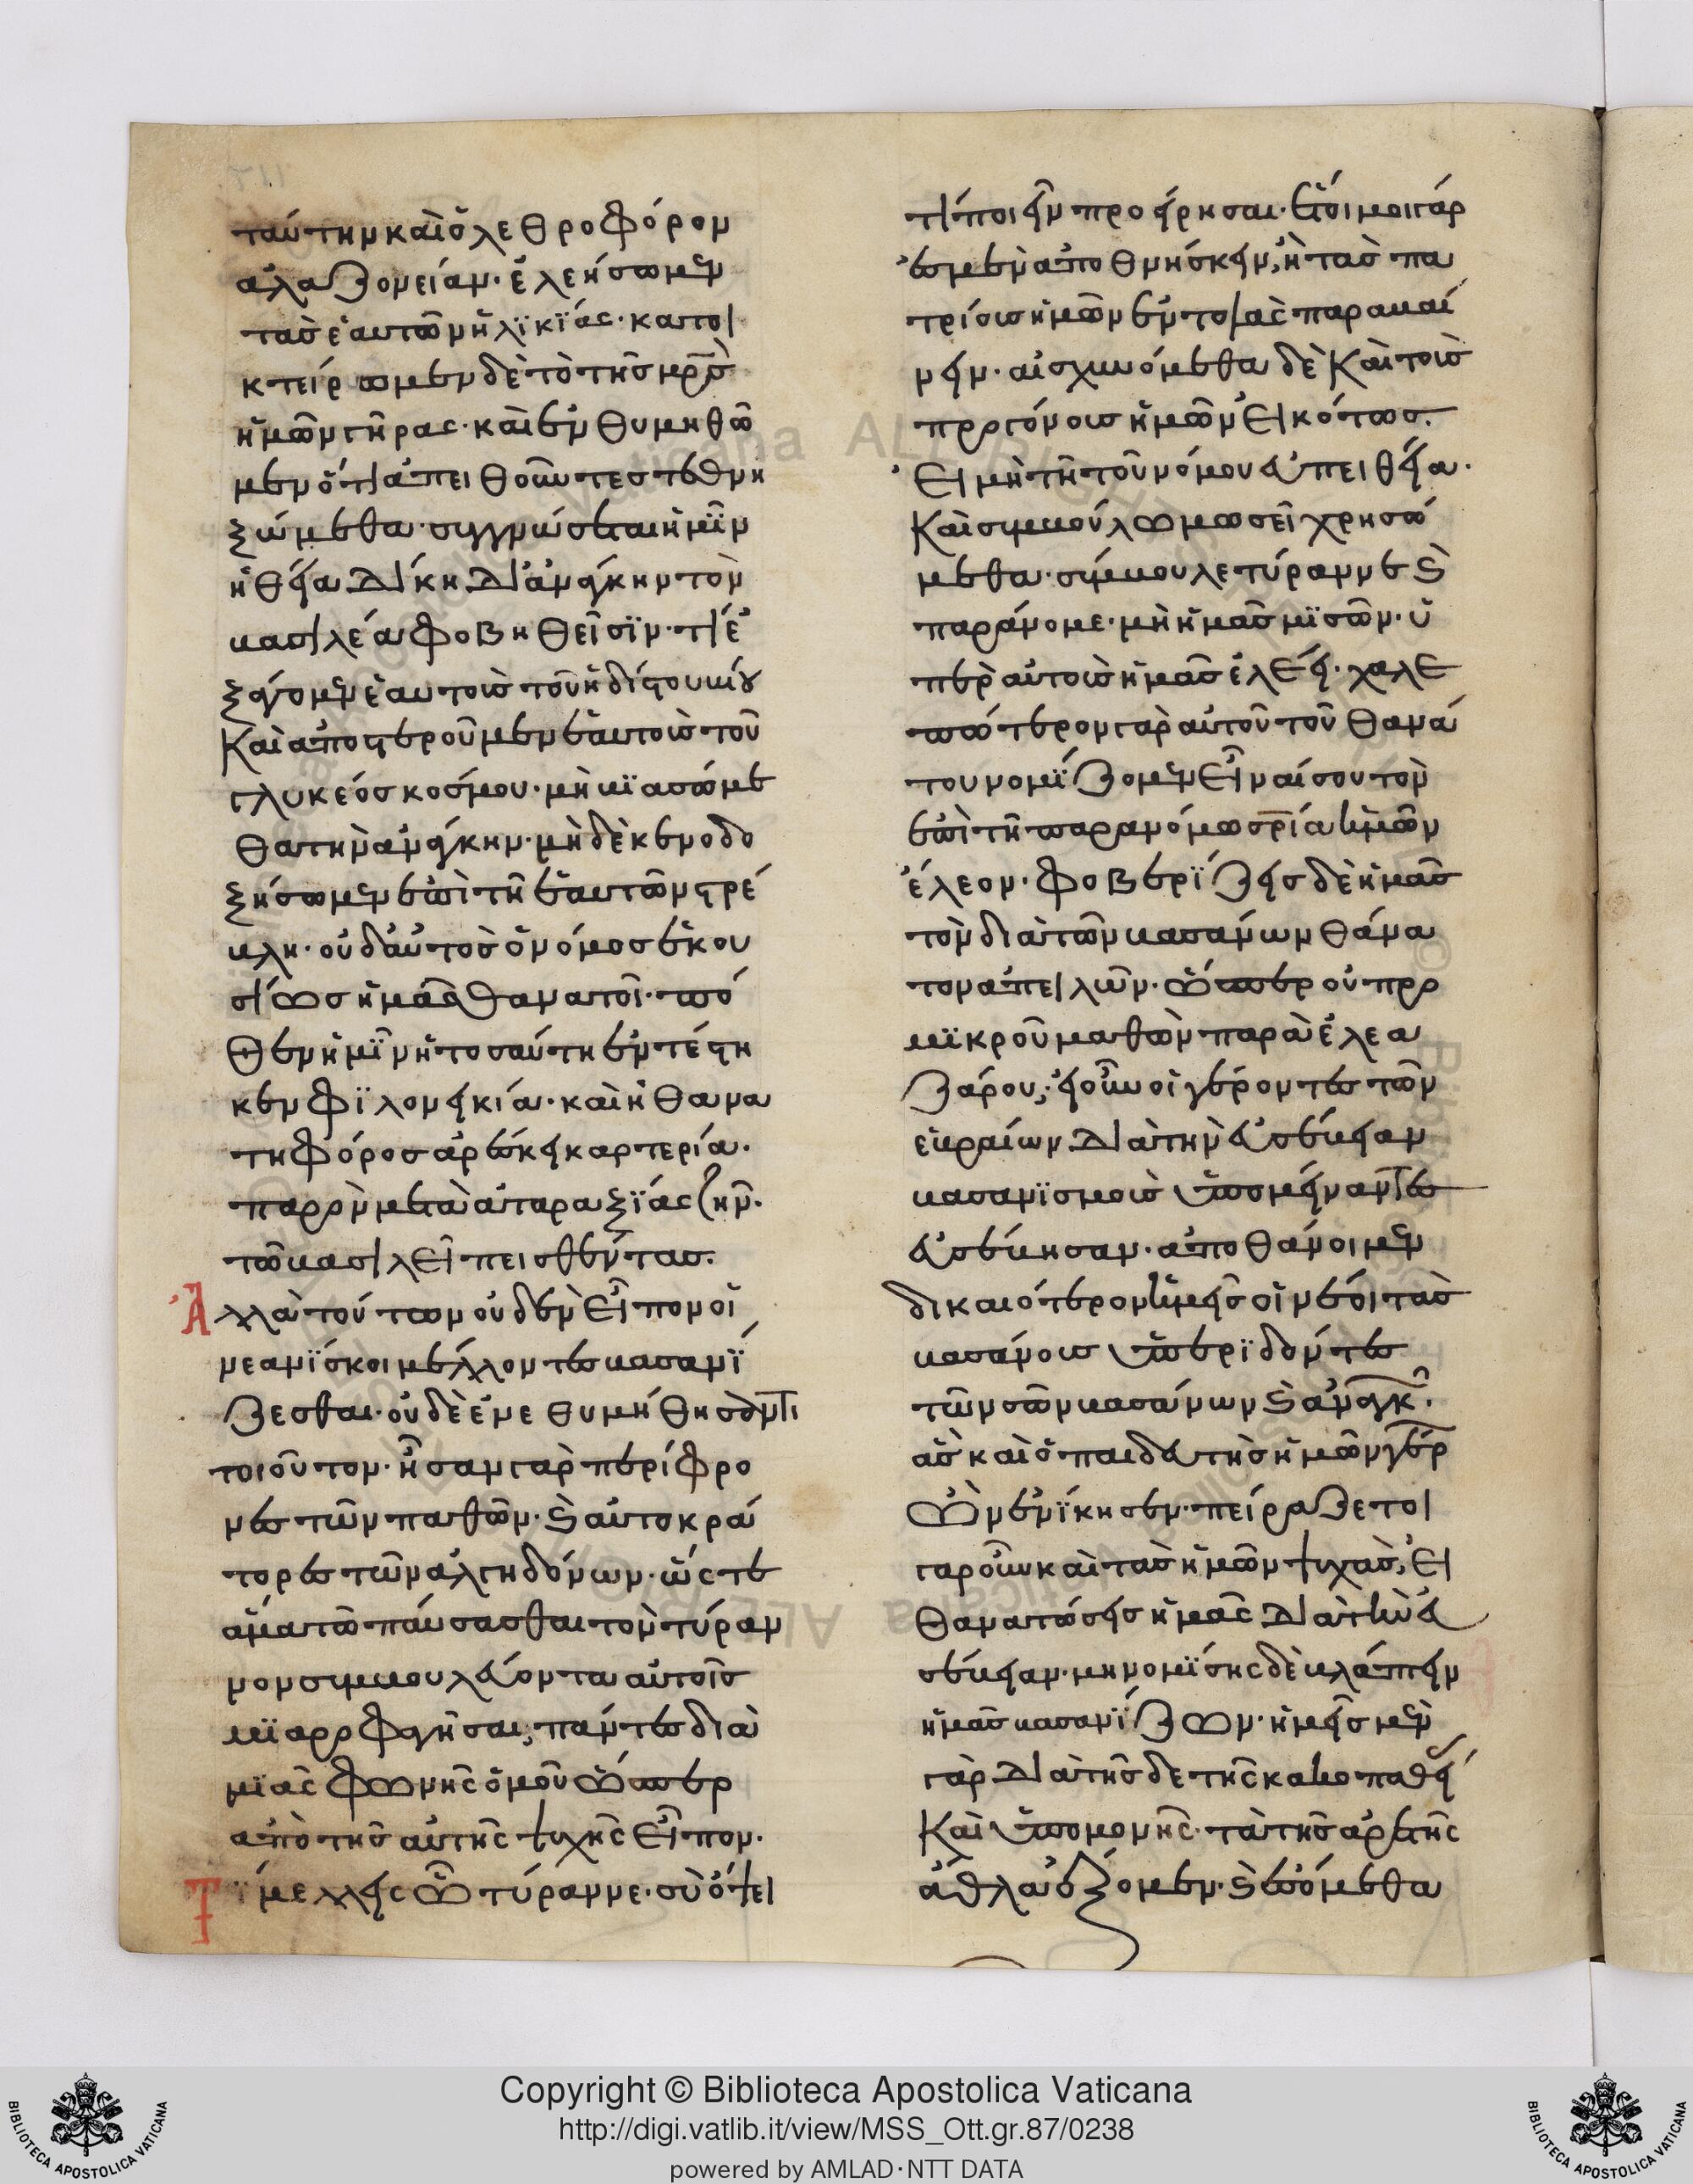 ταύτην καὶ ὀλεθροφόρον
ἀλαζονείαν· ἐλεήσωμεν
τὰς ἑαυτῶν ἡλϊκϊάς· κατοι
κτείρωμεν δὲ τὸ τῆς μρ̅ς
ἡμῶν γῆρας· καὶ ἐνθυμηθῶ
μεν ὅτι ἀπειθοῦντες τεθνη
ξώμεθα· συγγνώσεται ἡμῖν
ἡ θεία δίκη δι' ἀνάγκην τὸν
βασιλέα φοβηθεῖσϊν· τί ἐ
ξάγομεν ἑαυτοὺς τοῦ ἡδίστου βίου
καὶ ἀποστεροῦμεν ἑαυτοὺς τοῦ
γλυκέος κόσμου· μὴ βϊασώμε
θα τὴν ἀνάγκην· μὴ δὲ κενοδο
ξήσωμεν ἐπὶ τῆ ἑαυτῶν στρέ
βλη· οὐδ' αὐτὸς ὁ νόμος ἑκου
σίως ἡμᾶς θανατοῖ· πό
θεν ἡμῖν ἡ τοσαύτη ἐντέτη
κεν φϊλονεικία· καὶ ἡ θανα
τηφόρος ἀρέσκει καρτερία·
παρὸν μετὰ ἀταραξΐας ζῆν·
τῶ βασιλεῖ πεισθέντας·
Ἀλλὰ τούτων οὐδὲν εἶπον οἱ
νεανΐσκοι μέλλοντες βασανΐ
ζεσθαι· οὐδὲ ἐνεθυμήθησαν τι
τοιοῦτον· ἦσαν γὰρ περίφρο
νες τῶν παθῶν· καὶ αὐτοκρά
τορες τῶν ἀλγηδόνων· ὥς τε
ἅμα τῶ παύσασθαι τὸν τύραν
νον συμβουλεύοντα αὐτοῖς
μϊαροφαγῆσαι, πάντες διὰ
μϊᾶς φωνῆς ὁμοῦ ὥσπερ
ἀπὸ τῆς αὐτῆς ψυχῆς εἶπον·
Τΐ μέλλεις ὦ τύραννε· σὺ ὄψει
τί ποιεῖν προείρησαι· ἕτοιμοι γάρ
ἐσμεν ἀποθνήσκειν, ἢ τὰς πα
τρίους ἡμῶν ἐντολὰς παραβαί
νειν· αἰσχυνόμεθα δὲ καὶ τοὺς
προγόνους ἡμῶν εἰκότως·
Εἰ μὴ τῆ τοῦ νόμου εὐπειθεία·
καὶ συμβούλω μωσεῖ χρησώ
μεθα· σύμβουλε τύραννε καὶ
παράνομε· μὴ ἡμᾶς μϊσῶν· ὑ
πὲρ αὐτοὺς ἡμᾶς ἐλέει· χαλε
πώτερον γὰρ αὐτοῦ τοῦ θανά
του νομΐζομεν εἶναί σου τὸν
ἐπὶ τῆ παρανόμω σρ̅ία ἡμῶν
ἔλεον· φοβερΐζεις δὲ ἡμᾶς
τὸν διὰ τῶν βασάνων θάνα
τον ἀπειλῶν· ὥσπερ οὐ πρὸ
μϊκροῦ μαθὼν παρὰ ἐλεα
ζάρου, εἰ οὖν οἱ γέροντες τῶν
ἑβραίων διὰ τὴν εὐσέβειαν
βασανϊσμοὺς ὑπομείναντες
εὐσέβησαν· ἀποθάνοιμεν
δικαιότερον ἡμεῖς οἱ νέοι τὰς
βασάνους ὑπεριδόντες
τῶν σῶν βασάνων καὶ ἀναγκ.
ἃς καὶ ὁ παιδευτὴς ἡμῶν γέρ
ων ἐνΐκησεν· πείραζε τοι
γαροῦν καὶ τὰς ἡμῶν ψυχάς, εἰ
θανατώσεις ἡμᾶς διὰ τὴν εὐ
σέβειαν· μὴ νομΐσης δὲ βλάπτειν
ἡμᾶς βασανΐζων· ἡμεῖς μὲν
γὰρ διὰ τῆς δε τῆς κακοπαθεί
καὶ ὑπομονῆς· τὰ τῆς ἀρετῆς
ἆθλα ἕξομεν· καὶ ἐσόμεθα
Copyright © Biblioteca Apostolica Vaticana
http://digi.vatlib.it/view/MSS_Ott.gr.87/0238
powered by AMLAD·NTT DATA
BIBLIOTECA APOSTOLICA VATICANA
BIBLIOTECA APOSTOLICA VATICANA